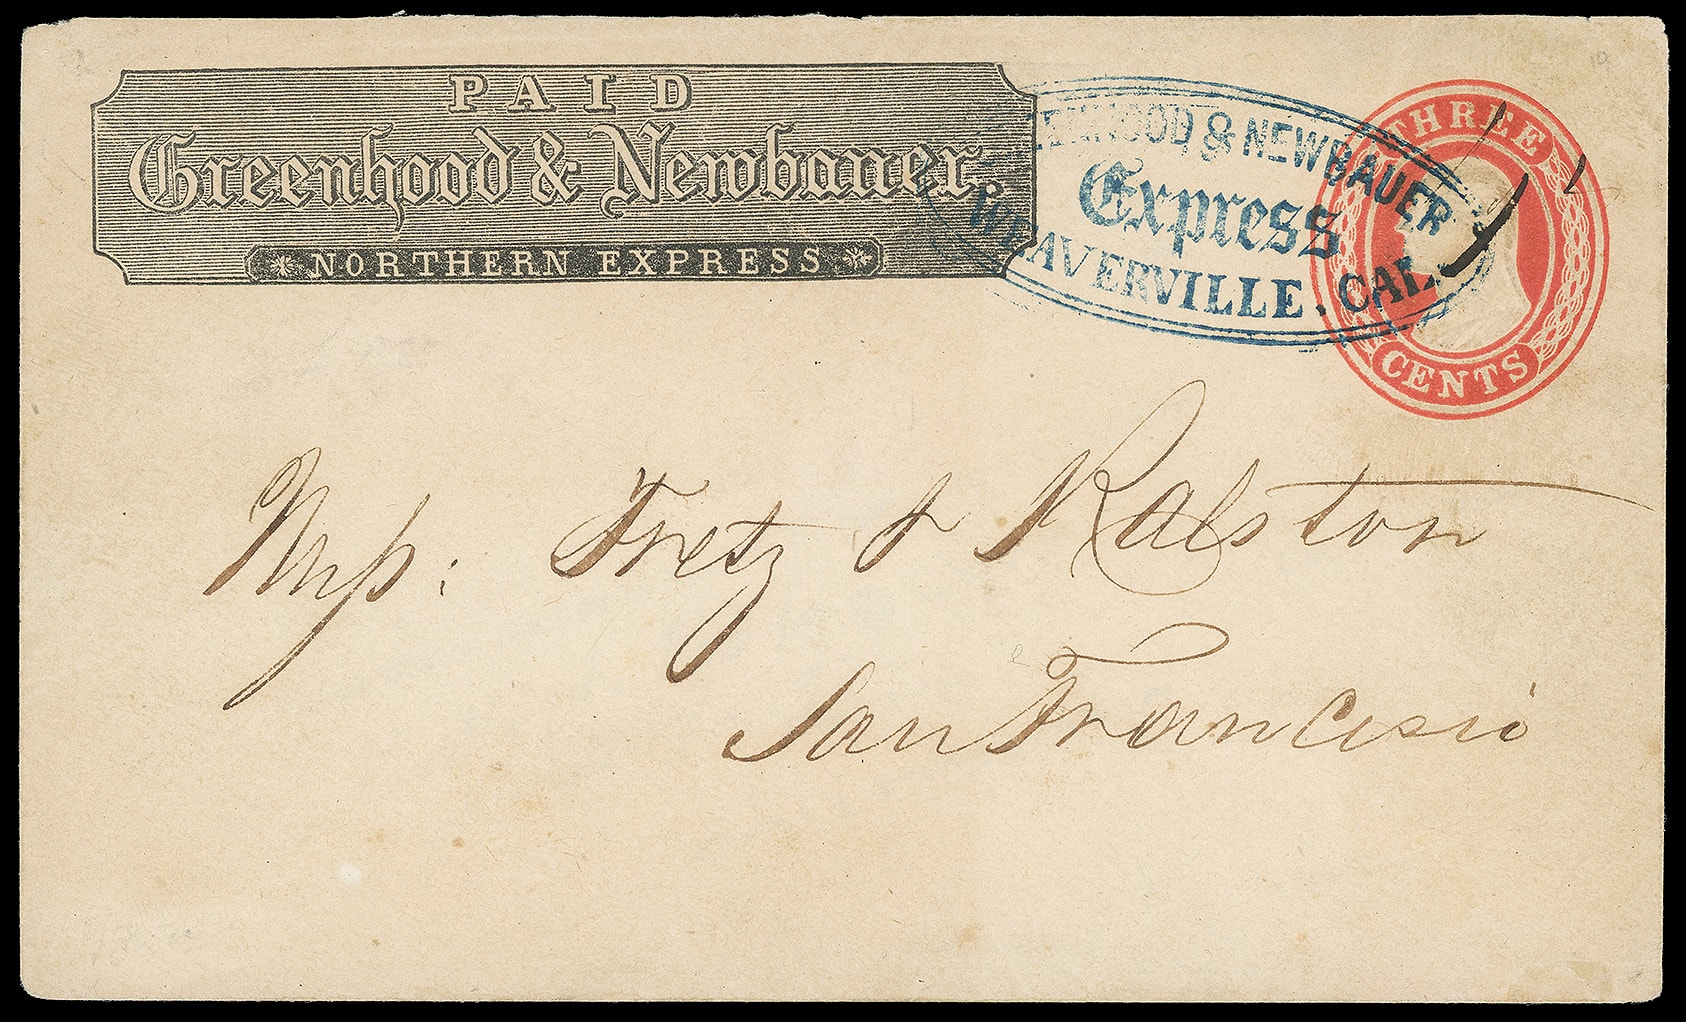 PAID
Greenhood & Newbauer
NORTHERN EXPRESS
GREENHOOD & NEWBAUER
Express
WEAVERVILLE. CAL.
THREE
CENTS
Mess: Fretz & Ralston
San Francisco